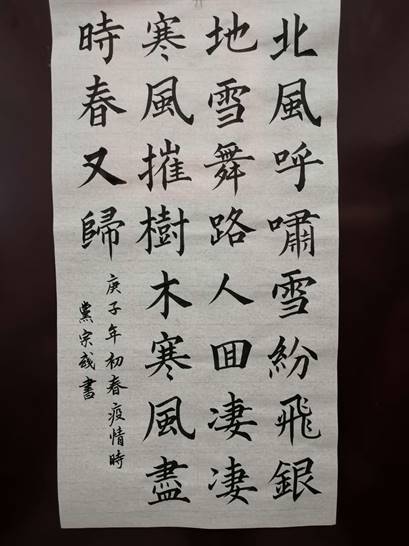 北風呼嘯雪紛飛銀
地雪舞路人囬凄凄
寒風摧樹木寒風盡
時春又歸
庚子年初春疫情時
黨宗書